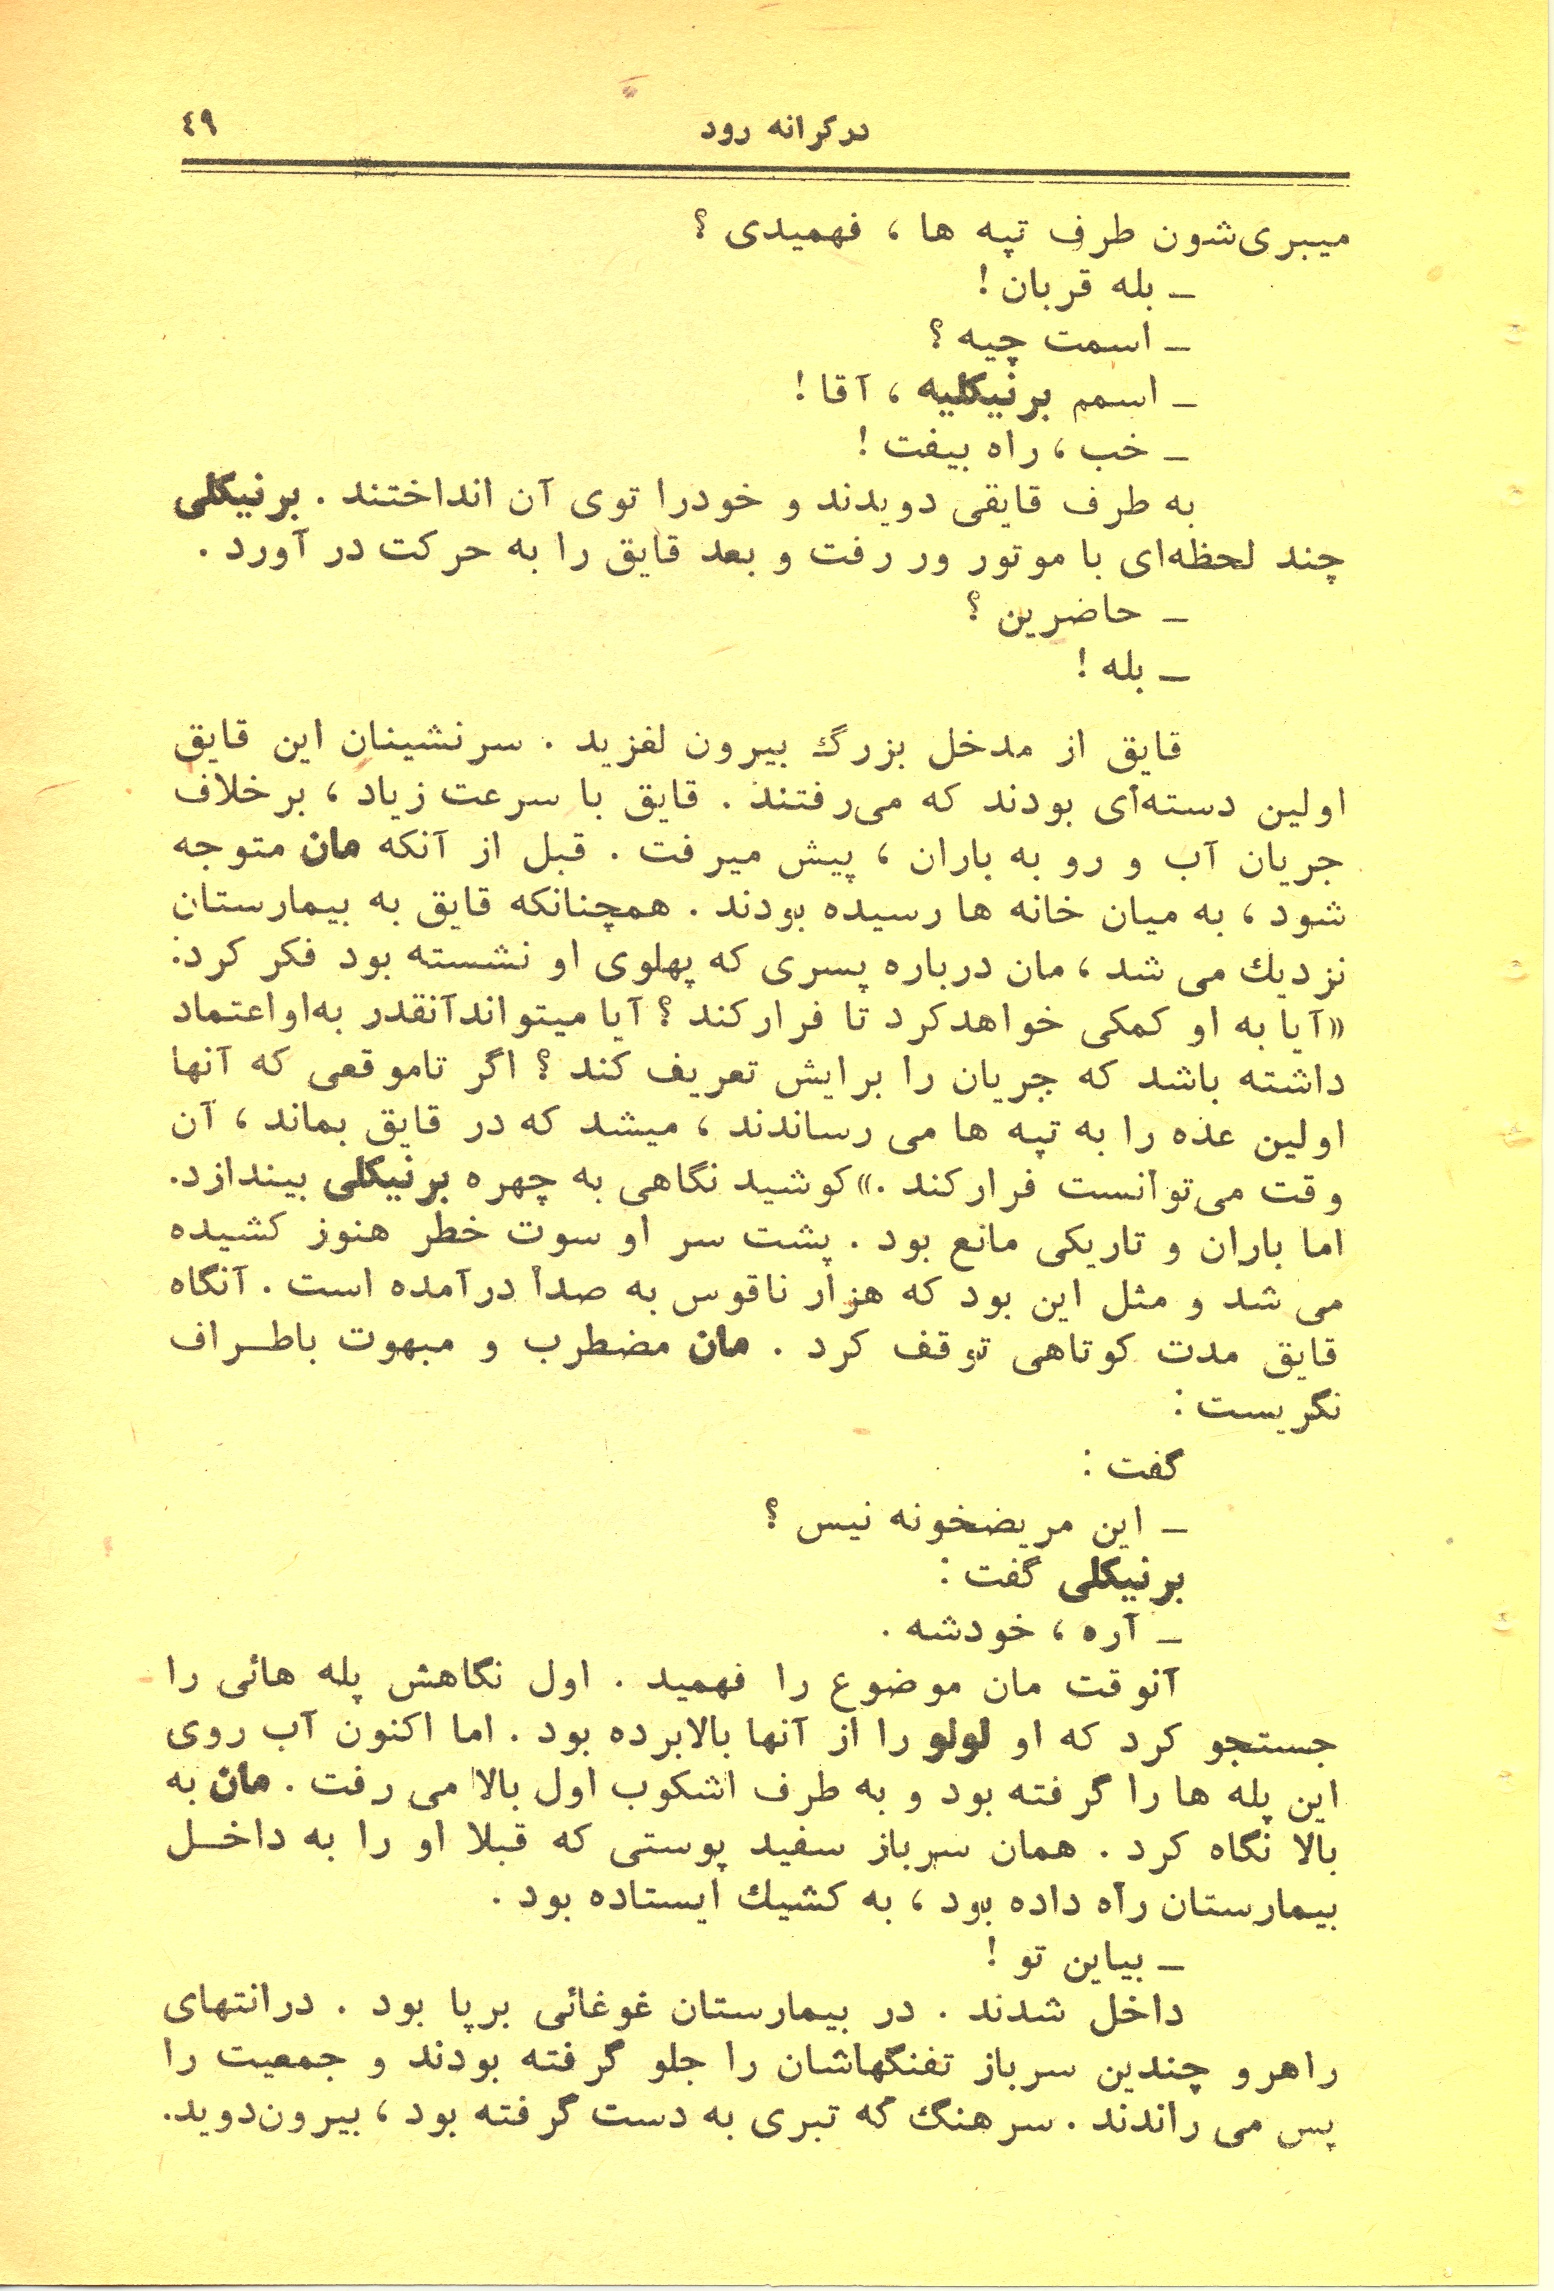 در کرانه رود
٤٩
میبری‌شون طرف تپه ها ، فهمیدی ؟
ـ بله قربان !
ـ اسمت چیه ؟
ـ اسمم برنیکلیه ، آقا !
ـ خب ، راه بیفت !
به طرف قایقی دویدند و خودرا توی آن انداختند . برنیکلی
چند لحظه‌ای با موتور ور رفت و بعد قایق را به حرکت در آورد .
ـ حاضرین ؟
ـ بله !
قایق از مدخل بزرگ بیرون لغزید . سرنشینان این قایق
اولین دسته‌ای بودند که می‌رفتند . قایق با سرعت زیاد ، برخلاف
جریان آب و رو به باران ، پیش میرفت . قبل از آنکه مان متوجه
شود ، به میان خانه ها رسیده بودند . همچنانکه قایق به بیمارستان
نزدیك می شد ، مان درباره پسری که پهلوی او نشسته بود فکر کرد:
«آیا به او کمکی خواهدکرد تا فرارکند ؟ آیا میتواندآنقدر به‌اواعتماد
داشته باشد که جریان را برایش تعریف کند ؟ اگر تاموقعی که آنها
اولین عده را به تپه ها می رساندند ، میشد که در قایق بماند ، آن
وقت می‌توانست فرارکند .» کوشید نگاهی به چهره برنیکلی بیندازد.
اما باران و تاریکی مانع بود . پشت سر او سوت خطر هنوز کشیده
می شد و مثل این بود که هزار ناقوس به صدا درآمده است . آنگاه
قایق مدت کوتاهی توقف کرد . مان مضطرب و مبهوت باطـراف
نگریست :
گفت :
ـ این مریضخونه نیس ؟
برنیکلی گفت :
ـ آره ، خودشه .
آنوقت مان موضوع را فهمید . اول نگاهش پله هائی را
جستجو کرد که او لولو را از آنها بالابرده بود . اما اکنون آب روی
این پله ها را گرفته بود و به طرف اشکوب اول بالا می رفت . مان به
بالا نگاه کرد . همان سرباز سفید پوستی که قبلا او را به داخـل
بیمارستان راه داده بود ، به کشیك ایستاده بود .
ـ بیاین تو !
داخل شدند . در بیمارستان غوغائی برپا بود . درانتهای
راهرو چندین سرباز تفنگهاشان را جلو گرفته بودند و جمعیت را
پس می راندند . سرهنگ که تبری به دست گرفته بود ، بیرون‌دوید.